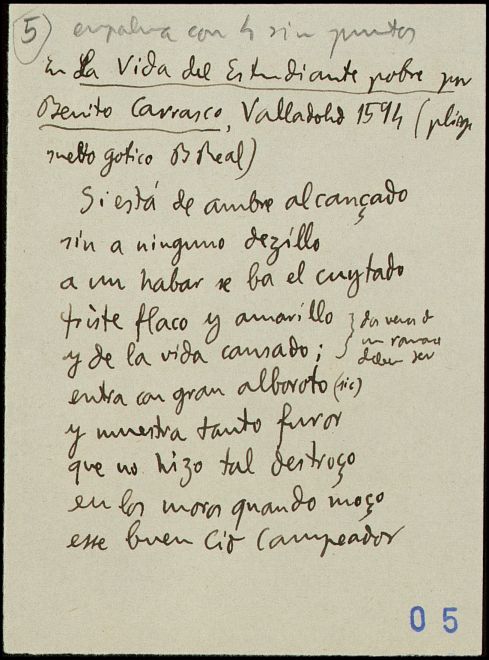 5 empalma con 4 sin puntos
En La Vida del Estudiante pobre por
Benito Carrasco, Valladolid 1594 (pliego
suelto gotico B Real)
Si está de ambre alcançado
sin a ninguno dezillo
a un habar se ba el cuytado
triste flaco y amarillo
y de la vida cansado;
dos versos de
un romance
deben ser
entra con gran alboroto (sic)
y muestra tanto furor
que no hizo tal destroço
en los moros quando moço
esse buen Cid Campeador
05